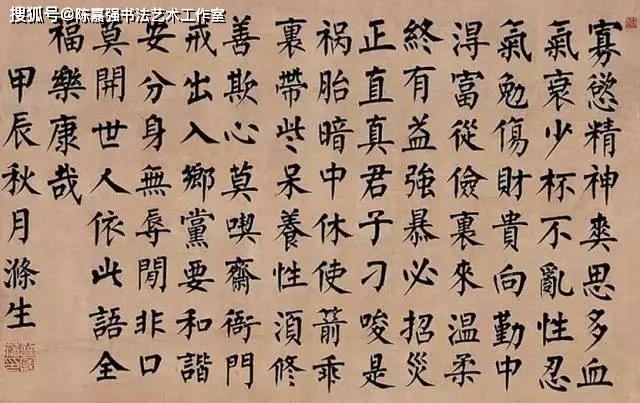 搜狐号@陈嘉强书法艺术工作室
寡慾精神爽思多血
氣衰少杯不亂性忍
氣勉傷財貴向勤中
淂富從儉裏來温柔
終有益強暴必招災
正直真君子刁唆是
祸胎暗中休使箭乖
裏帶些呆養性湏修
善欺心莫喫齋衙門
戒出入鄉黨要和諧
安分身無辱閒非口
莫開世人依此語全
福樂康哉
甲辰秋月滌生